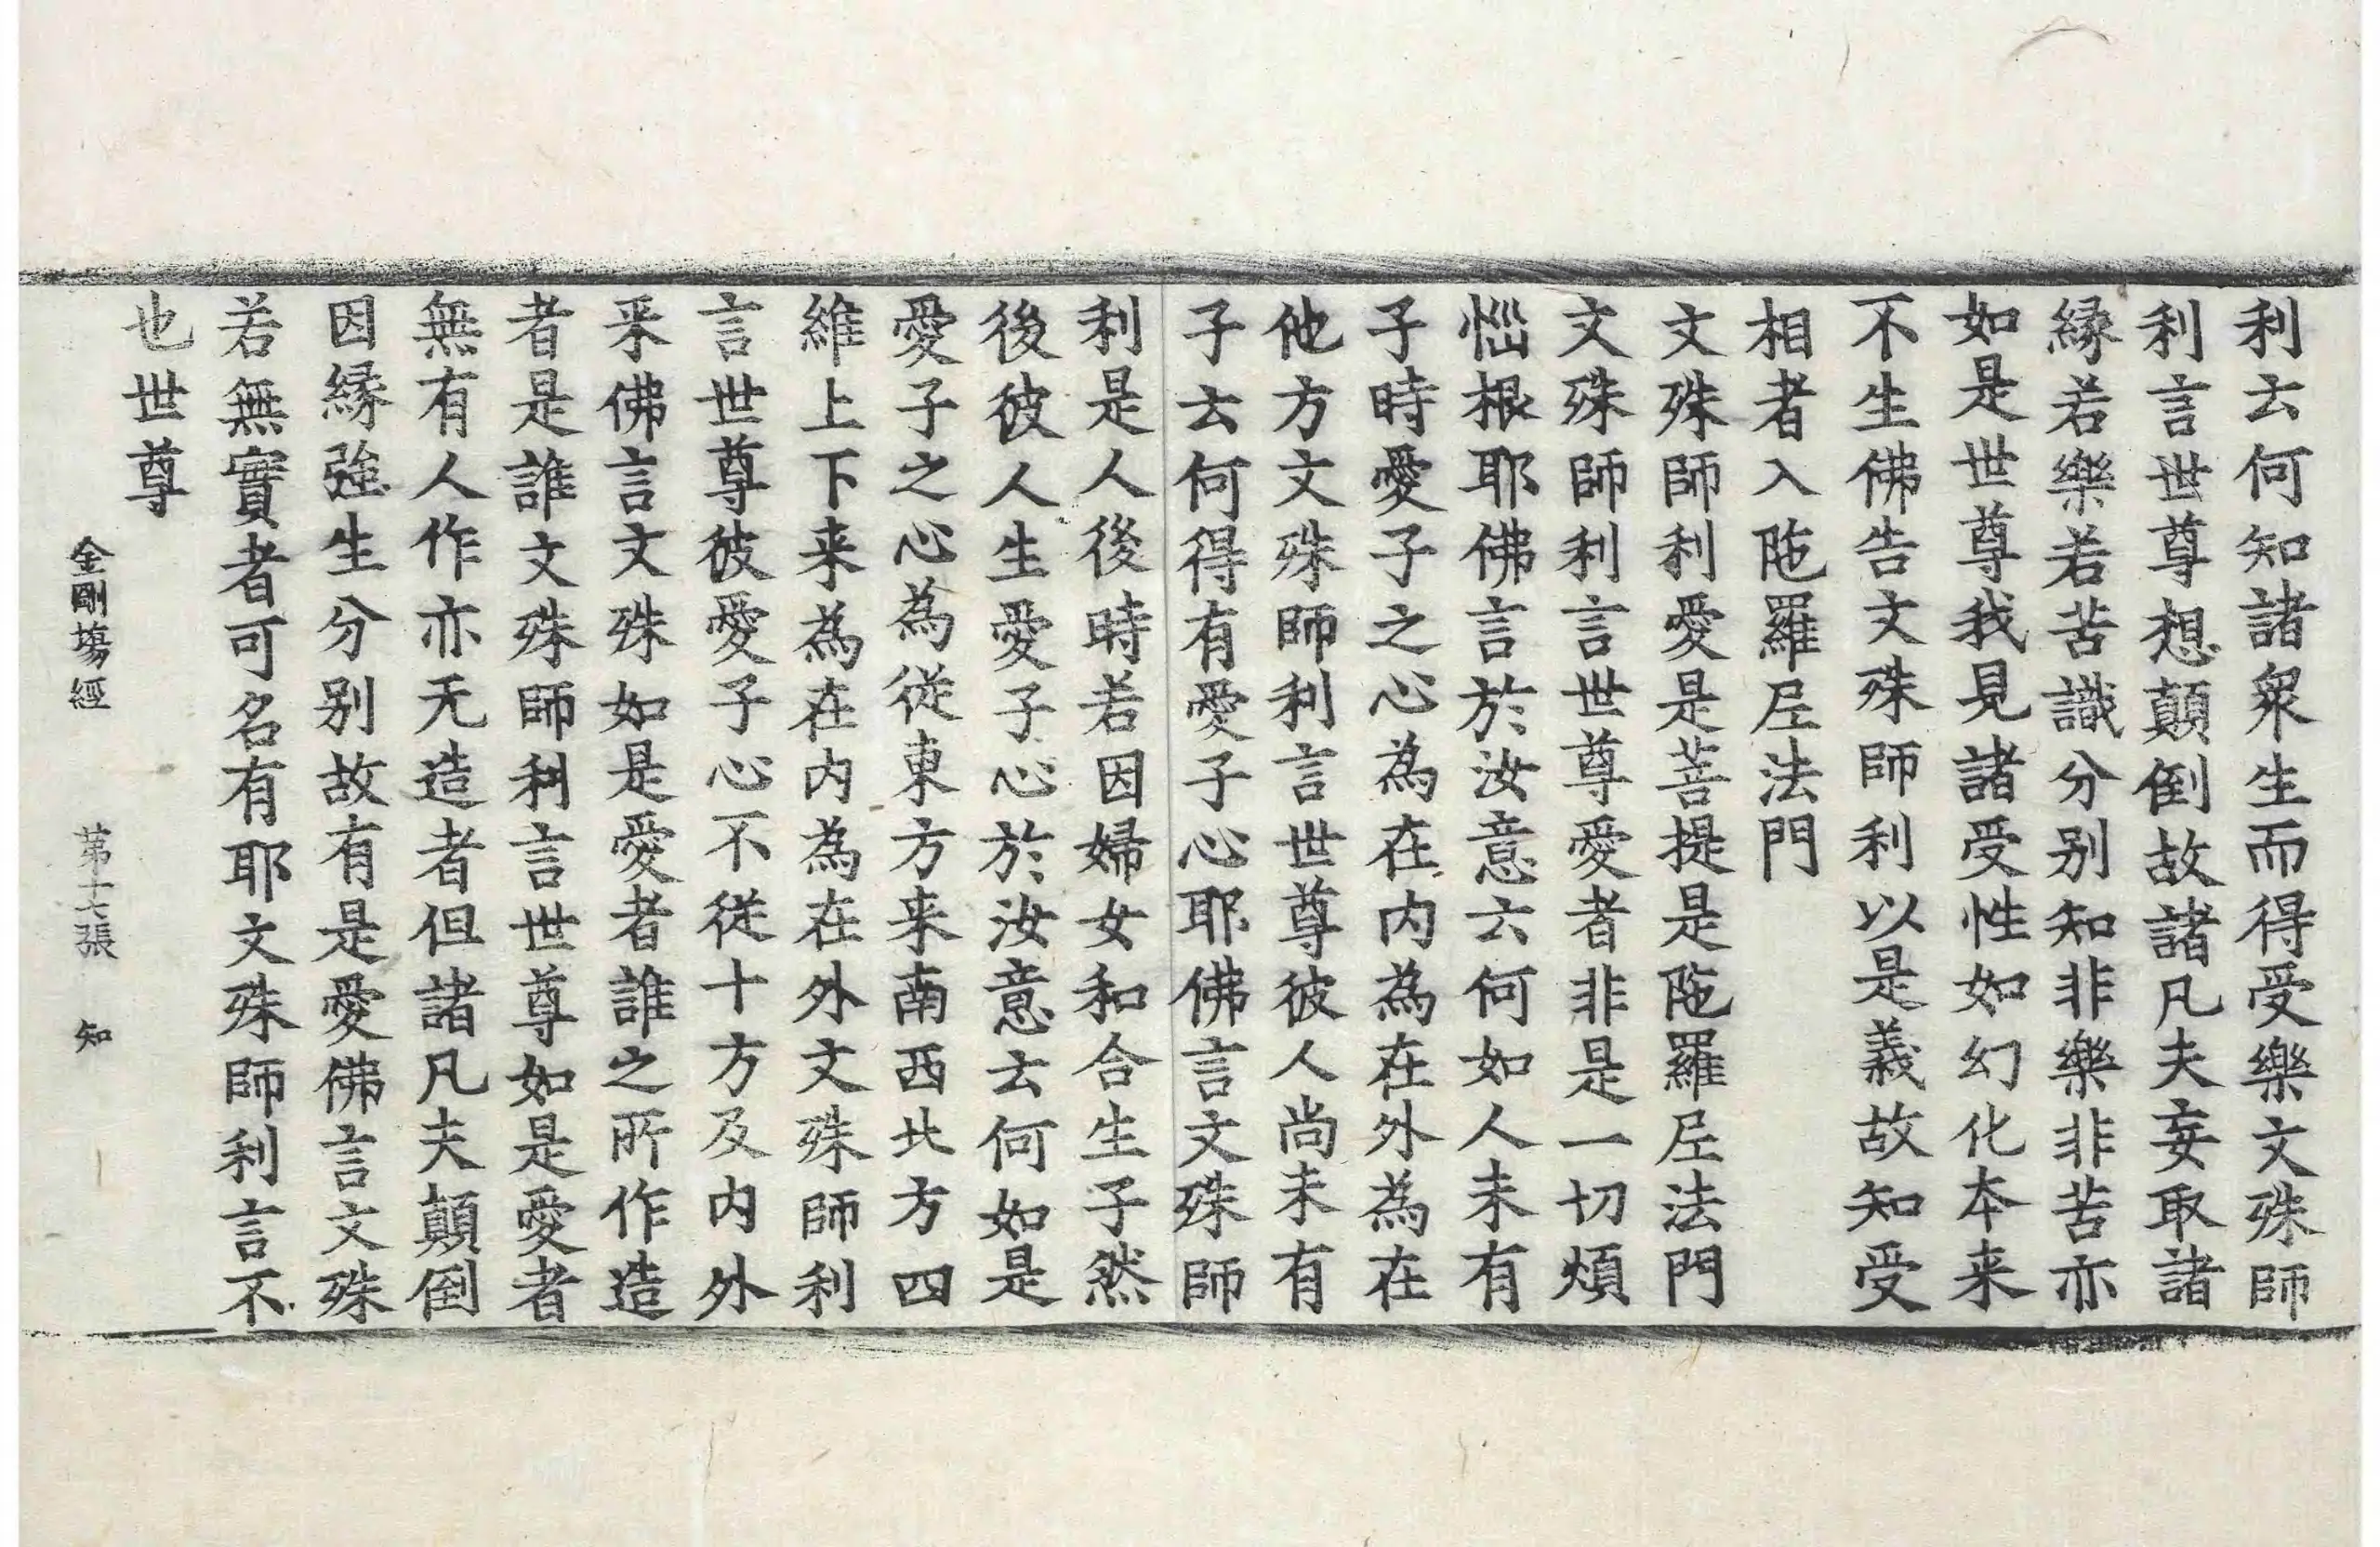 利云何知諸衆生而得受樂文殊師
利言世尊想顛倒故諸凡夫妄取諸
縁若樂若苦識分别知非樂非苦亦
如是世尊我見諸受性如幻化本来
不生佛告文殊師利以是義故知受
相者入陁羅𡰱法門
文殊師利愛是菩提是陁羅𡰱法門
文殊師利言世尊愛者非是一切煩
惱根耶佛言於汝意云何如人未有
子時愛子之心為在内為在外為在
他方文殊師利言世尊彼人尚未有
子云何得有愛子心耶佛言文殊師
利是人後時若因婦女和合生子然
後彼人生愛子心於汝意云何如是
愛子之心為從東方来南西北方四
維上下来為在内為在外文殊師利
言世尊彼愛子心不從十方及内外
来佛言文殊如是愛者誰之所作造
者是誰文殊師利言世尊如是愛者
無有人作亦无造者但諸凡夫顛倒
因縁強生分别故有是愛佛言文殊
若無實者可名有耶文殊師利言不
也世尊
金剛塲經 第十七張 知